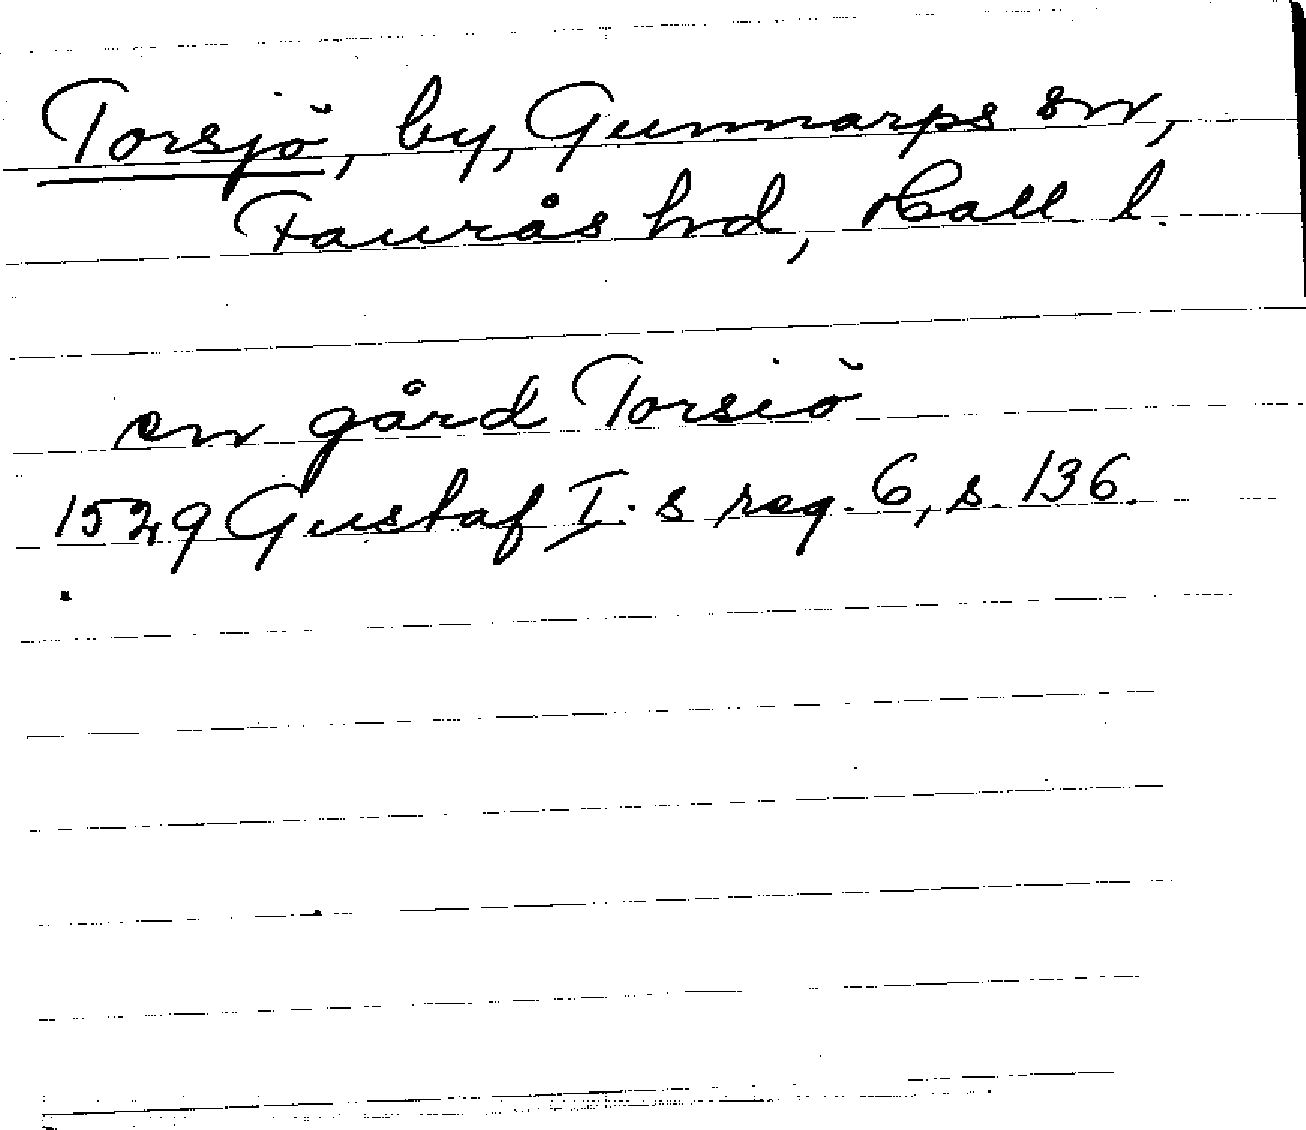 Torsjö, by, Gunnarps sn,
Faurås hd, Hall l.
en gård Torsiö
1529 Gustaf I.s reg. 6, s. 136.